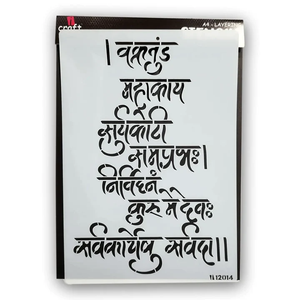 craft
A4 - LAYERING
STENCIL
। वक्रतुंड
महाकाय
सुर्यकोटी
समप्रभः।
निर्विघ्नं
कुरु मे देवः
सर्वकार्येषु सर्वदा।।
12014